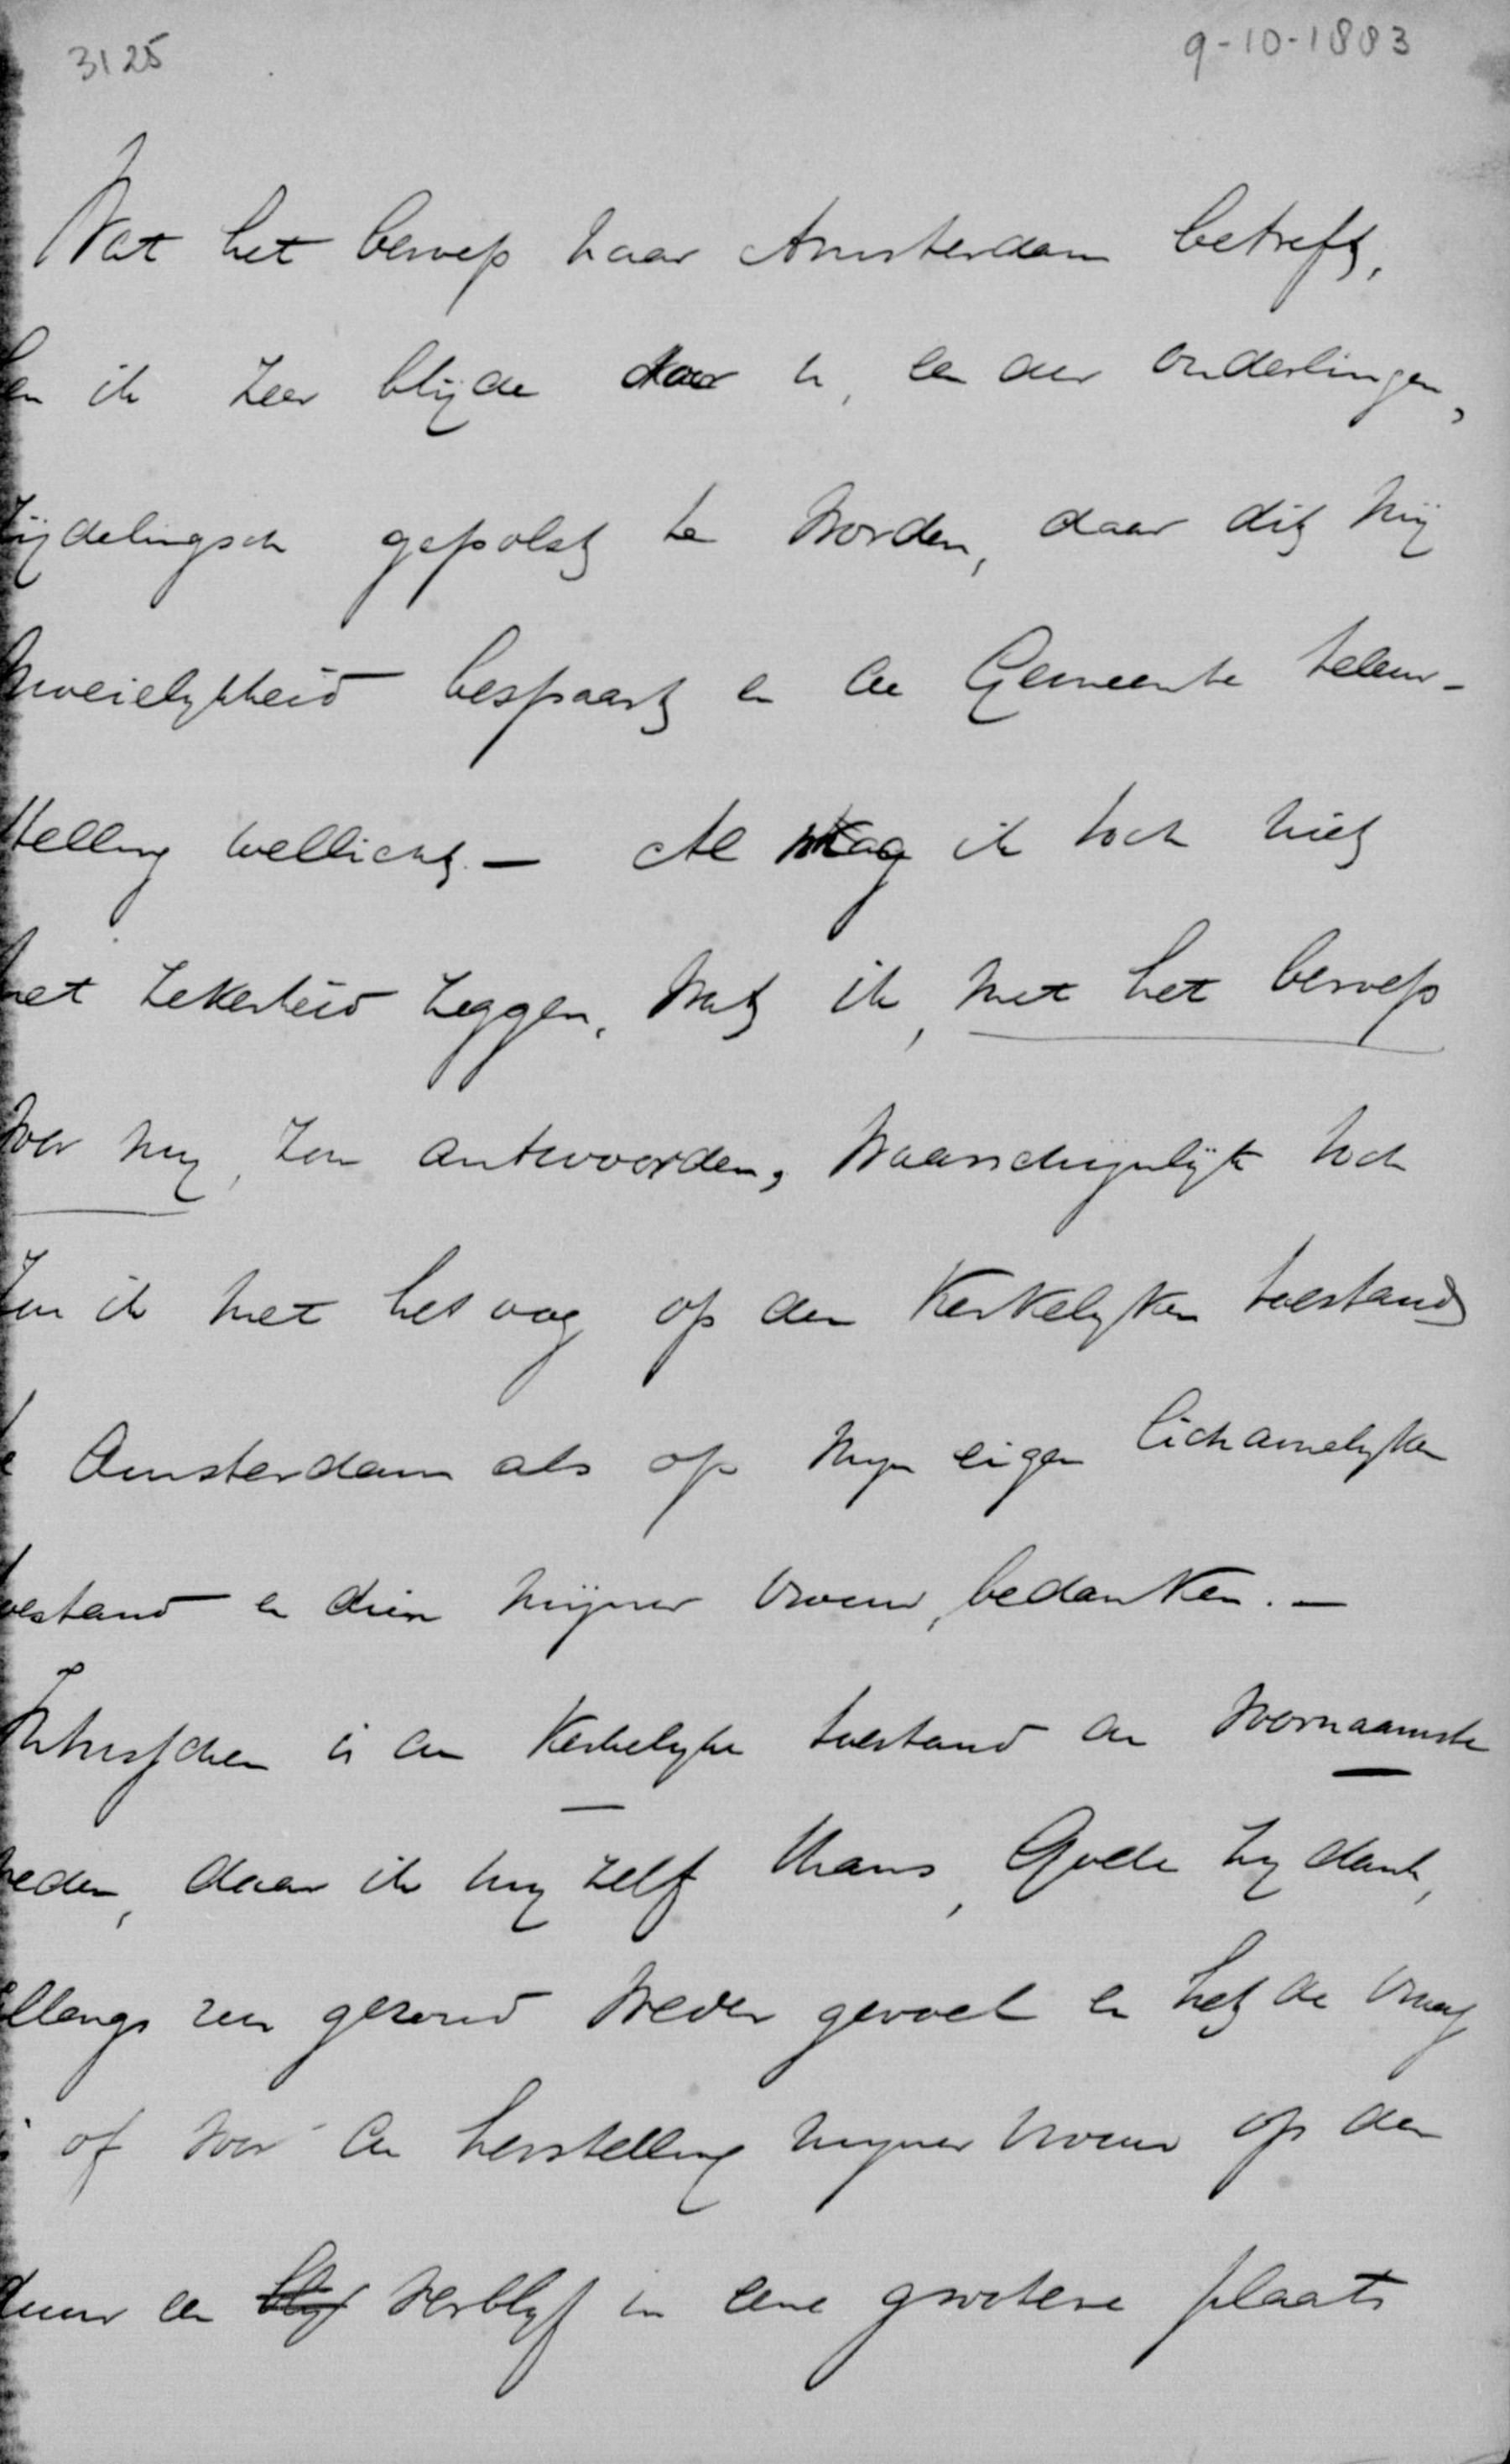 3125
9-10-1883
Wat het beroep naar Amsterdam betreft,
ben ik zeer blijde door u, en der ouderlingen,
zijdelingsch gepolst te worden, daar dit mij
moeielykheid bespaart en de Gemeente teleur-
stelling wellicht. — Al mag ik toch niet
met zekerheid zeggen, wat ik, met het beroep
voor my, zou antwoorden, waarschijnlijk toch
zou ik met het oog op den Kerkelyken toestand
te Amsterdam als op myn eigen lichamelyken
toestand en dien mijner vrouw, bedanken. —
Intusschen is de Kerkelyke toestand de voornaamste
reden, daar ik my zelf thans, Gode zy dank,
allengs zeer gezond weder gevoel en het de vraag
is of voor de herstelling mijner vrouw op den
duur een blyf verblyf in eene grootere plaats